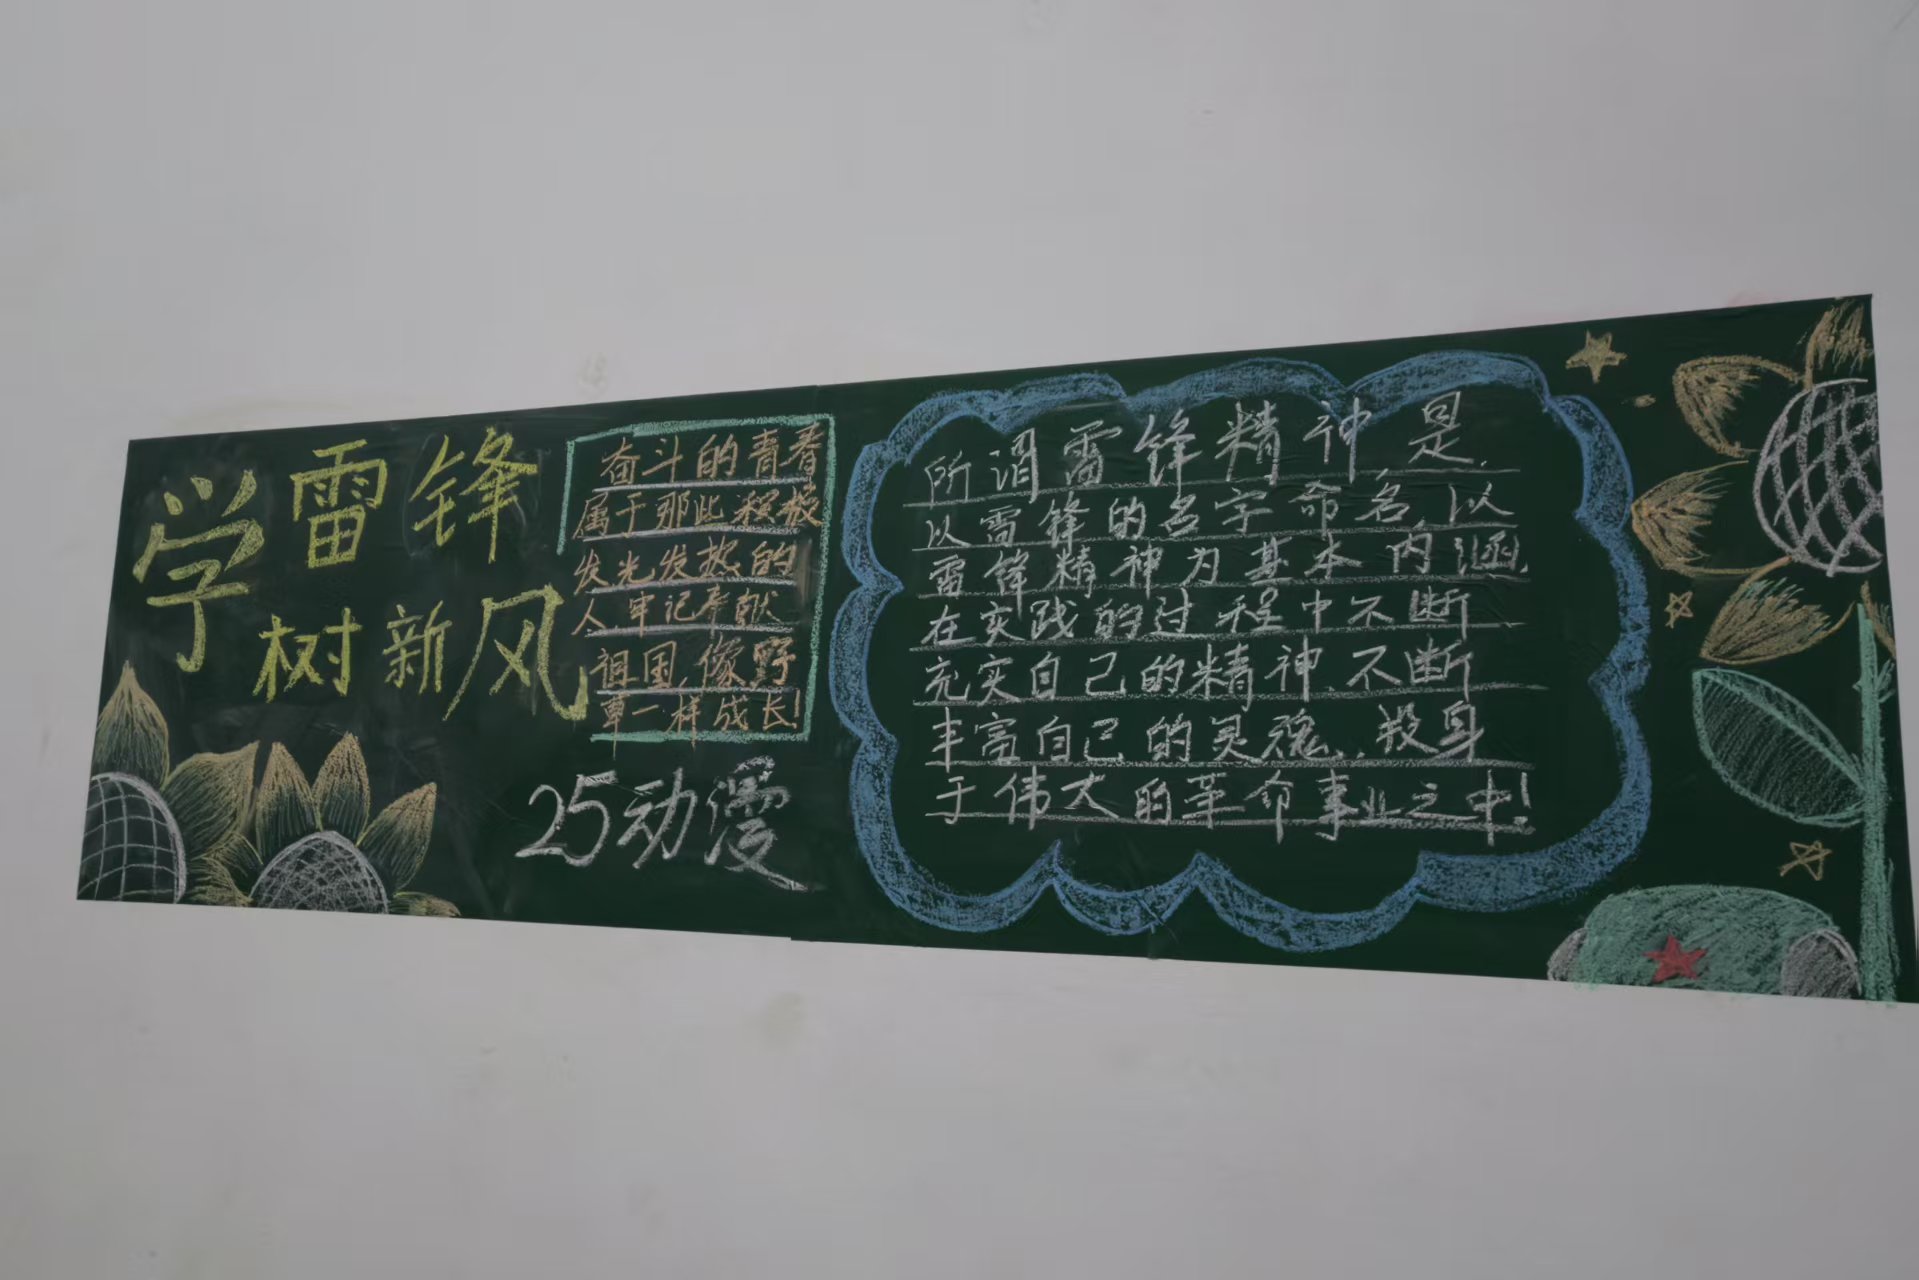 学雷锋
树新风
奋斗的青春
属于那些积极
发光发热的
人牢记奉献
祖国,像野
草一样成长!
25动漫
所谓雷锋精神,是
以雷锋的名字命名,以
雷锋精神为基本内涵,
在实践的过程中不断
充实自己的精神,不断
丰富自己的灵魂,投身
于伟大的革命事业之中!